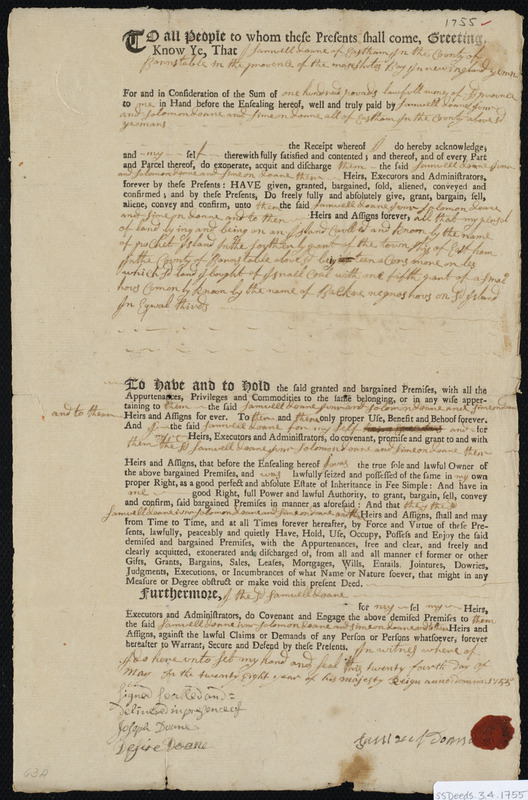 1755
TO all People to whom these Presents shall come, Greeting,
Know Ye, That I Samuell doane of Eastham In the County of
Barnstable In the provence of the Bay In new ingland yeman
For and in Consideration of the Sum of one hundred pounds lawfull money of province
to me in Hand before the Ensealing hereof, well and truly paid by Samuell doane junr
and Solomon doane and Simeon doane all of Eastham In the County above sd
yeomans
the Receipt whereof I do hereby acknowledge;
and my self therewith fully satisfied and contented; and thereof, and of every Part
and Parcel thereof, do exonerate, acquit and discharge them the said Samuell doane junr
and Solomon doane and Simeon doane there Heirs, Executors and Administrators,
forever by these Presents: HAVE given, granted, bargained, sold, aliened, conveyed and
confirmed; and by these Presents, Do freely fully and absolutely give, grant, bargain, sell,
aliene, convey and confirm, unto them the said Samuell doane junr Solomon doane
and Simeon doane and to there Heirs and Assigns forever, all that my
of land lying and being on an Island Called and known by the name
of pochet Island In the part of the town of Eastham
In the County of Barnstable above sd
which sd land I bought of Isnall Coal with one fifth part of a small
hous Comen by known by the name of negros hous on sd Island
In Eqwal
To Have and to Hold the said granted and bargained Premises, with all the
Appurtenances, Privileges and Commodities to the same belonging, or in any wise apper-
taining to them the said Samuell doane junr and Solomon doane and Simeon doane
and to there Heirs and Assigns for ever. To them and there only proper Use, Benefit and Behoof forever.
And I the said Samuell doane for my self and for
my Heirs, Executors and Administrators, do covenant, promise and grant to and with
them the sd Samuell doane junr Solomon doane and Simeon doane there
Heirs and Assigns, that before the Ensealing hereof I was the true sole and lawful Owner of
the above bargained Premises, and was lawfully seized and possessed of the same in my own
proper Right, as a good perfect and absolute Estate of Inheritance in Fee Simple: And have in
me good Right, full Power and lawful Authority, to grant, bargain, sell, convey
and confirm, said bargained Premises in manner as aforesaid: And that they the sd
Samuell doane junr Solomon doane and Simeon doane and there Heirs and Assigns, shall and may
from Time to Time, and at all Times forever hereafter, by Force and Virtue of these Pre-
sents, lawfully, peaceably and quietly Have, Hold, Use, Occupy, Possess and Enjoy the said
demised and bargained Premises, with the Appurtenances, free and clear, and freely and
clearly acquitted, exonerated and discharged of, from all and all manner of former or other
Gifts, Grants, Bargains, Sales, Leases, Mortgages, Wills, Entails, Jointures, Dowries,
Judgments, Executions, or Incumbrances of what Name or Nature soever, that might in any
Measure or Degree obstruct or make void this present Deed.
Furthermore, I the sd Samuell doane
for my self my Heirs,
Executors and Administrators, do Covenant and Engage the above demised Premises to them
the said Samuell doane junr Solomon doane and Simeon doane and there Heirs and
Assigns, against the lawful Claims or Demands of any Person or Persons whatsoever, forever
hereafter to Warrant, Secure and Defend by these Presents. In witness where of
I do have unto set my hand and seal this twenty fourth day of
May In the twenty Eight year of his majesty Reign anno domini 1755
Signed sealed and
Delivered in presence of
Joseph Doane
Desire Doane
Samuel Doane
G3A
SSDeeds.3.4.1755